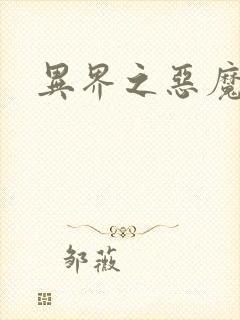 異界之惡魔
邹薇